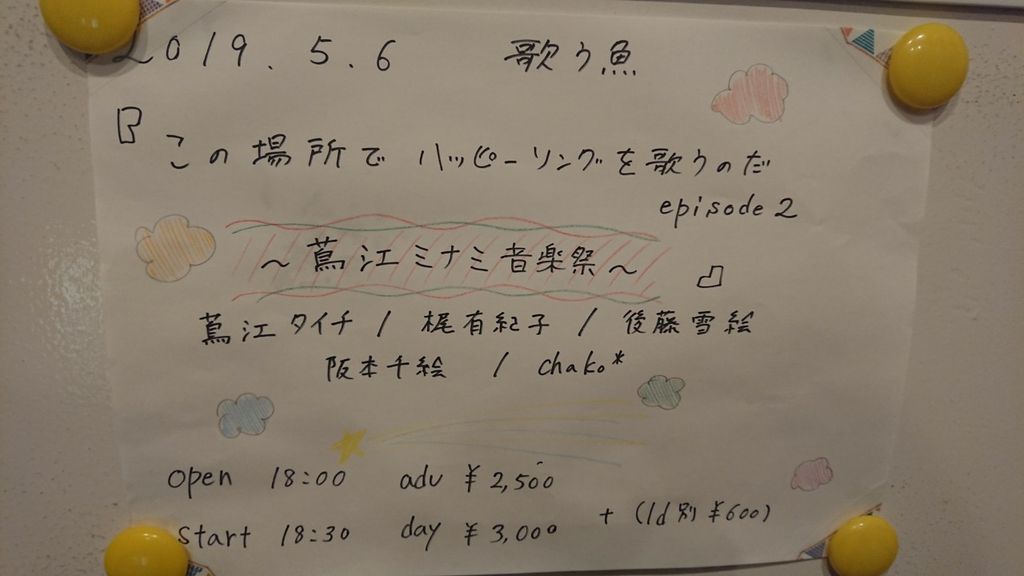 2019.5.6 歌う魚
『この場所でハッピーソングを歌うのだ
episode 2
～蔦江ミナミ音楽祭～』
蔦江タイチ / 梶有紀子 / 後藤雪絵
阪本千絵 / chako*
open 18:00 adv ¥2,500
start 18:30 day ¥3,000 + (1d別¥600)